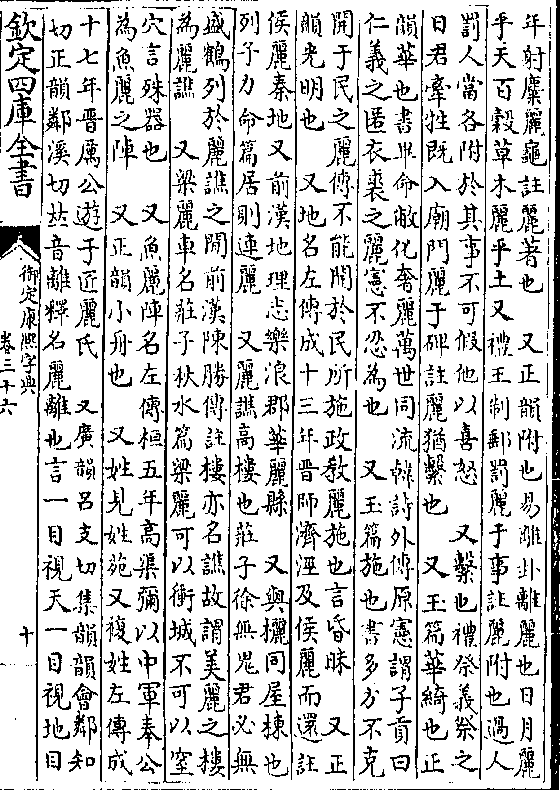 年射麋麗龜註麗著也　又正韻附也易離卦離麗也日月麗
乎天百穀草木麗乎土又禮王制郵罰麗于事註麗附也過人
罰人當各附於其事不可假他以喜怒　又繫也禮祭義祭之
日君牽牲既入廟門麗于碑註麗猶繫也　又玉篇華綺也正
韻華也書畢命敝化奢麗萬世同流韓詩外傳原憲謂子貢曰
仁義之匿衣裘之麗憲不忍為也　又玉篇施也書多方不克
開于民之麗傳不能開於民所施政教麗施也言昏昧　又正
韻光明也　又地名左傳成十三年晉師濟涇及侯麗而還註
侯麗秦地又前漢地理志樂浪郡華麗縣　又與欐同屋棟也
列子力命篇居則連麗　又麗譙高樓也莊子徐無鬼君必無
盛鶴列於麗譙之閒前漢陳勝傳註樓亦名譙故謂美麗之樓
為麗譙　又梁麗車名莊子秋水篇梁麗可以衝城不可以窒
穴言殊器也　又魚麗陣名左傳桓五年高渠彌以中軍奉公
為魚麗之陣　又正韻小舟也　又姓見姓苑又複姓左傳成
十七年晉厲公遊于匠麗氏　又廣韻呂支切集韻韻會鄰知
切正韻鄰溪切𠀤音離釋名麗離也言一目視天一目視地目
欽定四庫全書
御定康熙字典
卷三十六
十